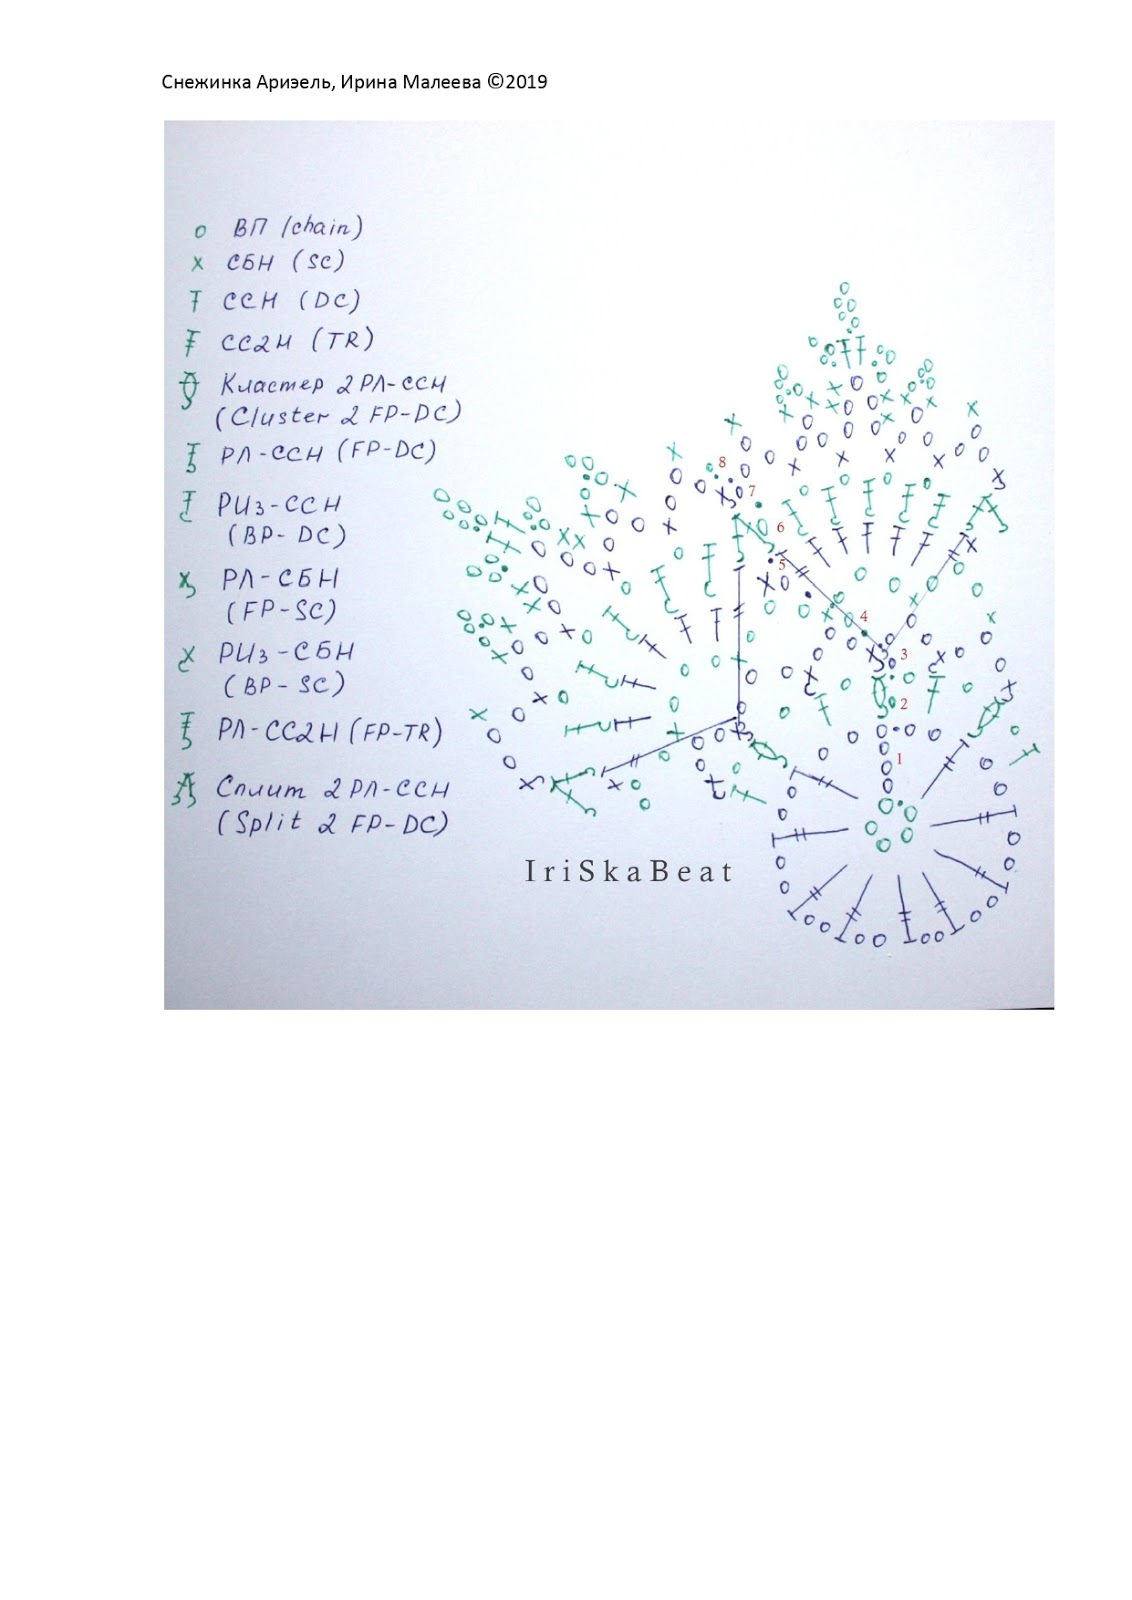 Снежинка Ариэель, Ирина Малеева ©2019
ВП (chain)
СБН (SC)
ССН (DC)
СС2Н (TR)
Кластер 2 РЛ-ССН
(Cluster 2 FP-DC)
РЛ-ССН (FP-DC)
РИз-ССН
(BP-DC)
РЛ-СБН
(FP-SC)
РИз-СБН
(BP-SC)
РЛ-СС2Н (FP-TR)
Сплит 2 РЛ-ССН
(Split 2 FP-DC)
8
7
6
5
4
3
2
1
IriSkaBeat